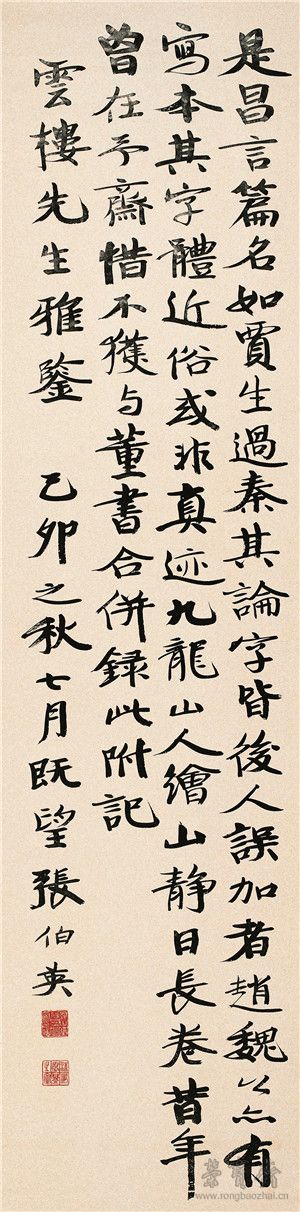 是昌言篇名如賈生過秦其論字皆後人誤加者趙魏公亦有
寫本其字體近俗或非真迹九龍山人繪山静日長卷昔年
曾在予齋惜不獲与董書合併録此附記
雲樓先生雅鑒 己卯之秋七月既望張伯英
榮寶齋
www.rongbaozhai.cn